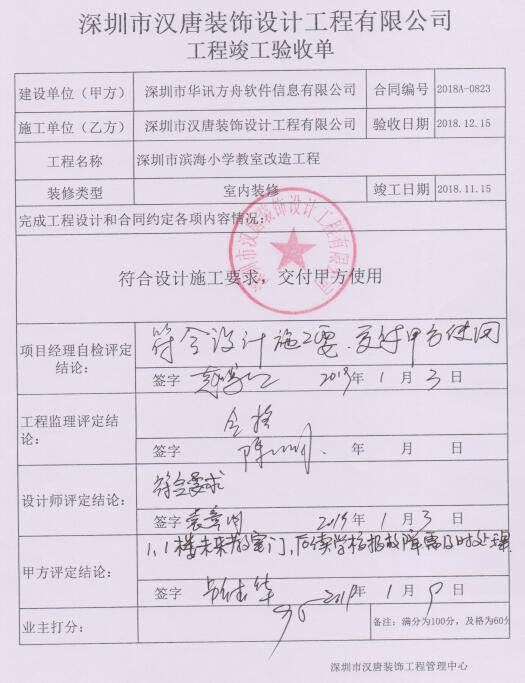 深圳市汉唐装饰设计工程有限公司
工程竣工验收单
建设单位（甲方） 深圳市华讯方舟软件信息有限公司 合同编号 2018A-0823
施工单位（乙方） 深圳市汉唐装饰设计工程有限公司 验收日期 2018.12.15
工程名称 深圳市滨海小学教室改造工程
装修类型 室内装修 竣工日期 2018.11.15
完成工程设计和合同约定各项内容情况：
深圳市汉唐装饰设计工程有限公司
符合设计施工要求，交付甲方使用
项目经理自检评定结论：
符合设计施工要 交付甲方使用
签字 2019年 1 月 3 日
工程监理评定结论：
合格
签字 年 月 日
设计师评定结论：
符合要求
签字 2019 1 月 3 日
甲方评定结论：
1、1楼未来教室门，后续学校报故障需及时处理
签字 2019 1 月 9 日
业主打分： 95 备注：满分为100分，及格为60分
深圳市汉唐装饰工程管理中心